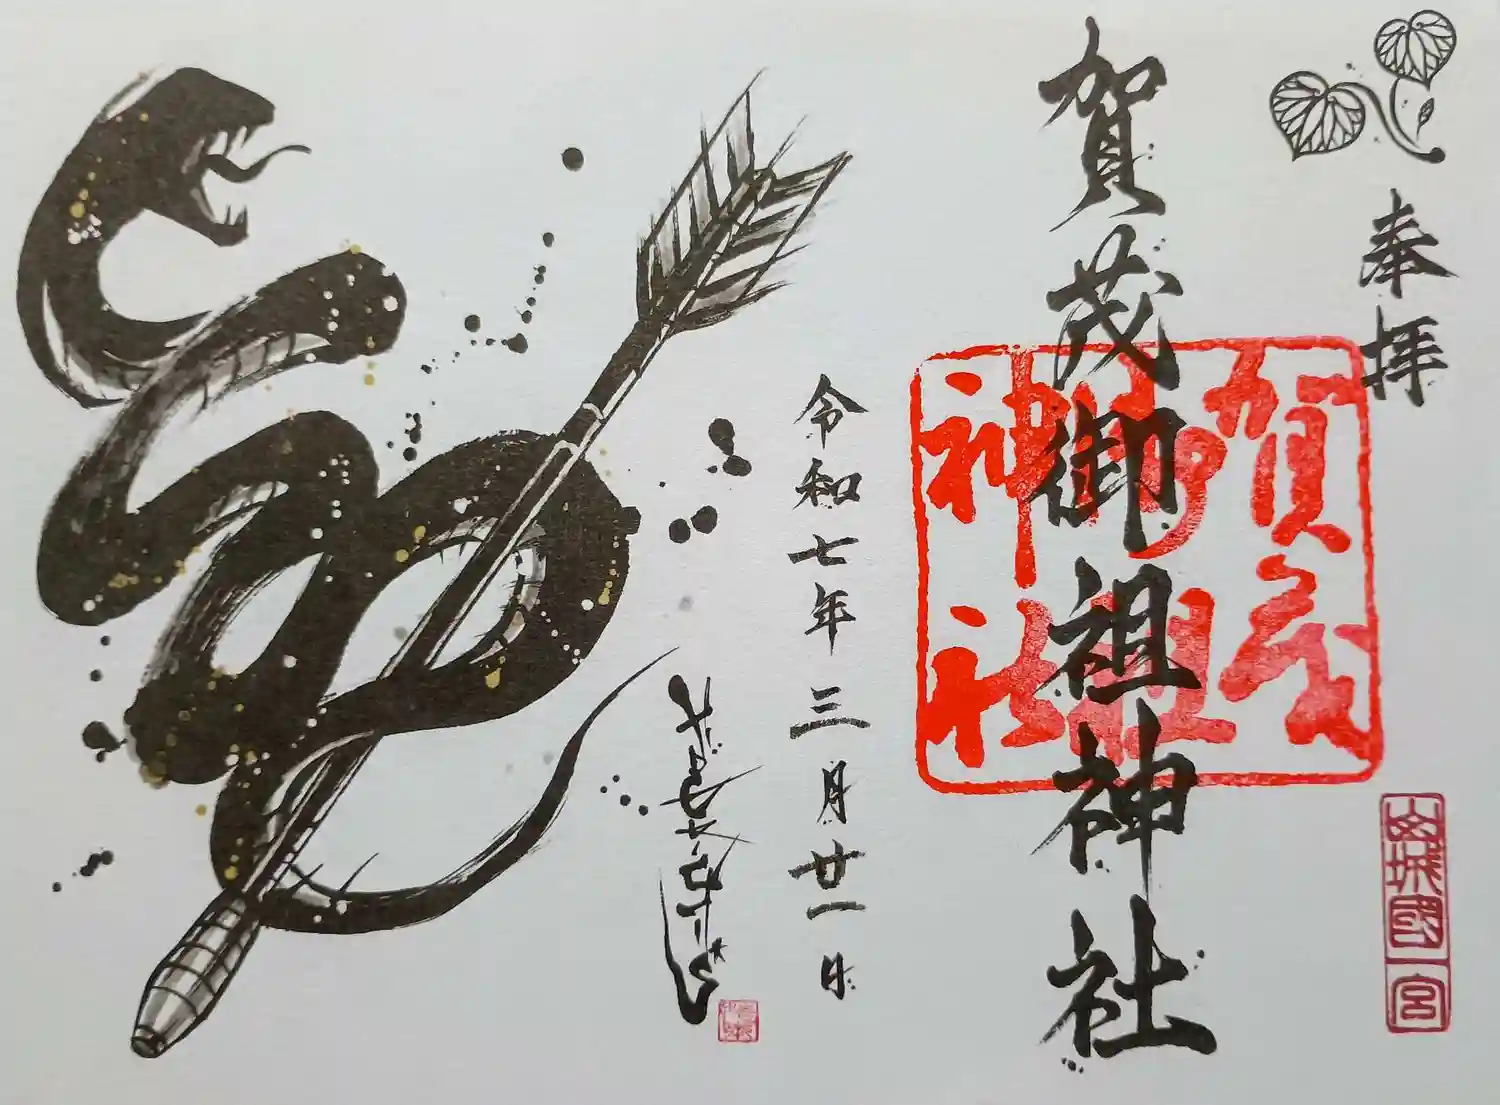 奉拝
賀茂御祖神社
賀茂
御祖
神社
山城國一宮
令和七年三月廿一日